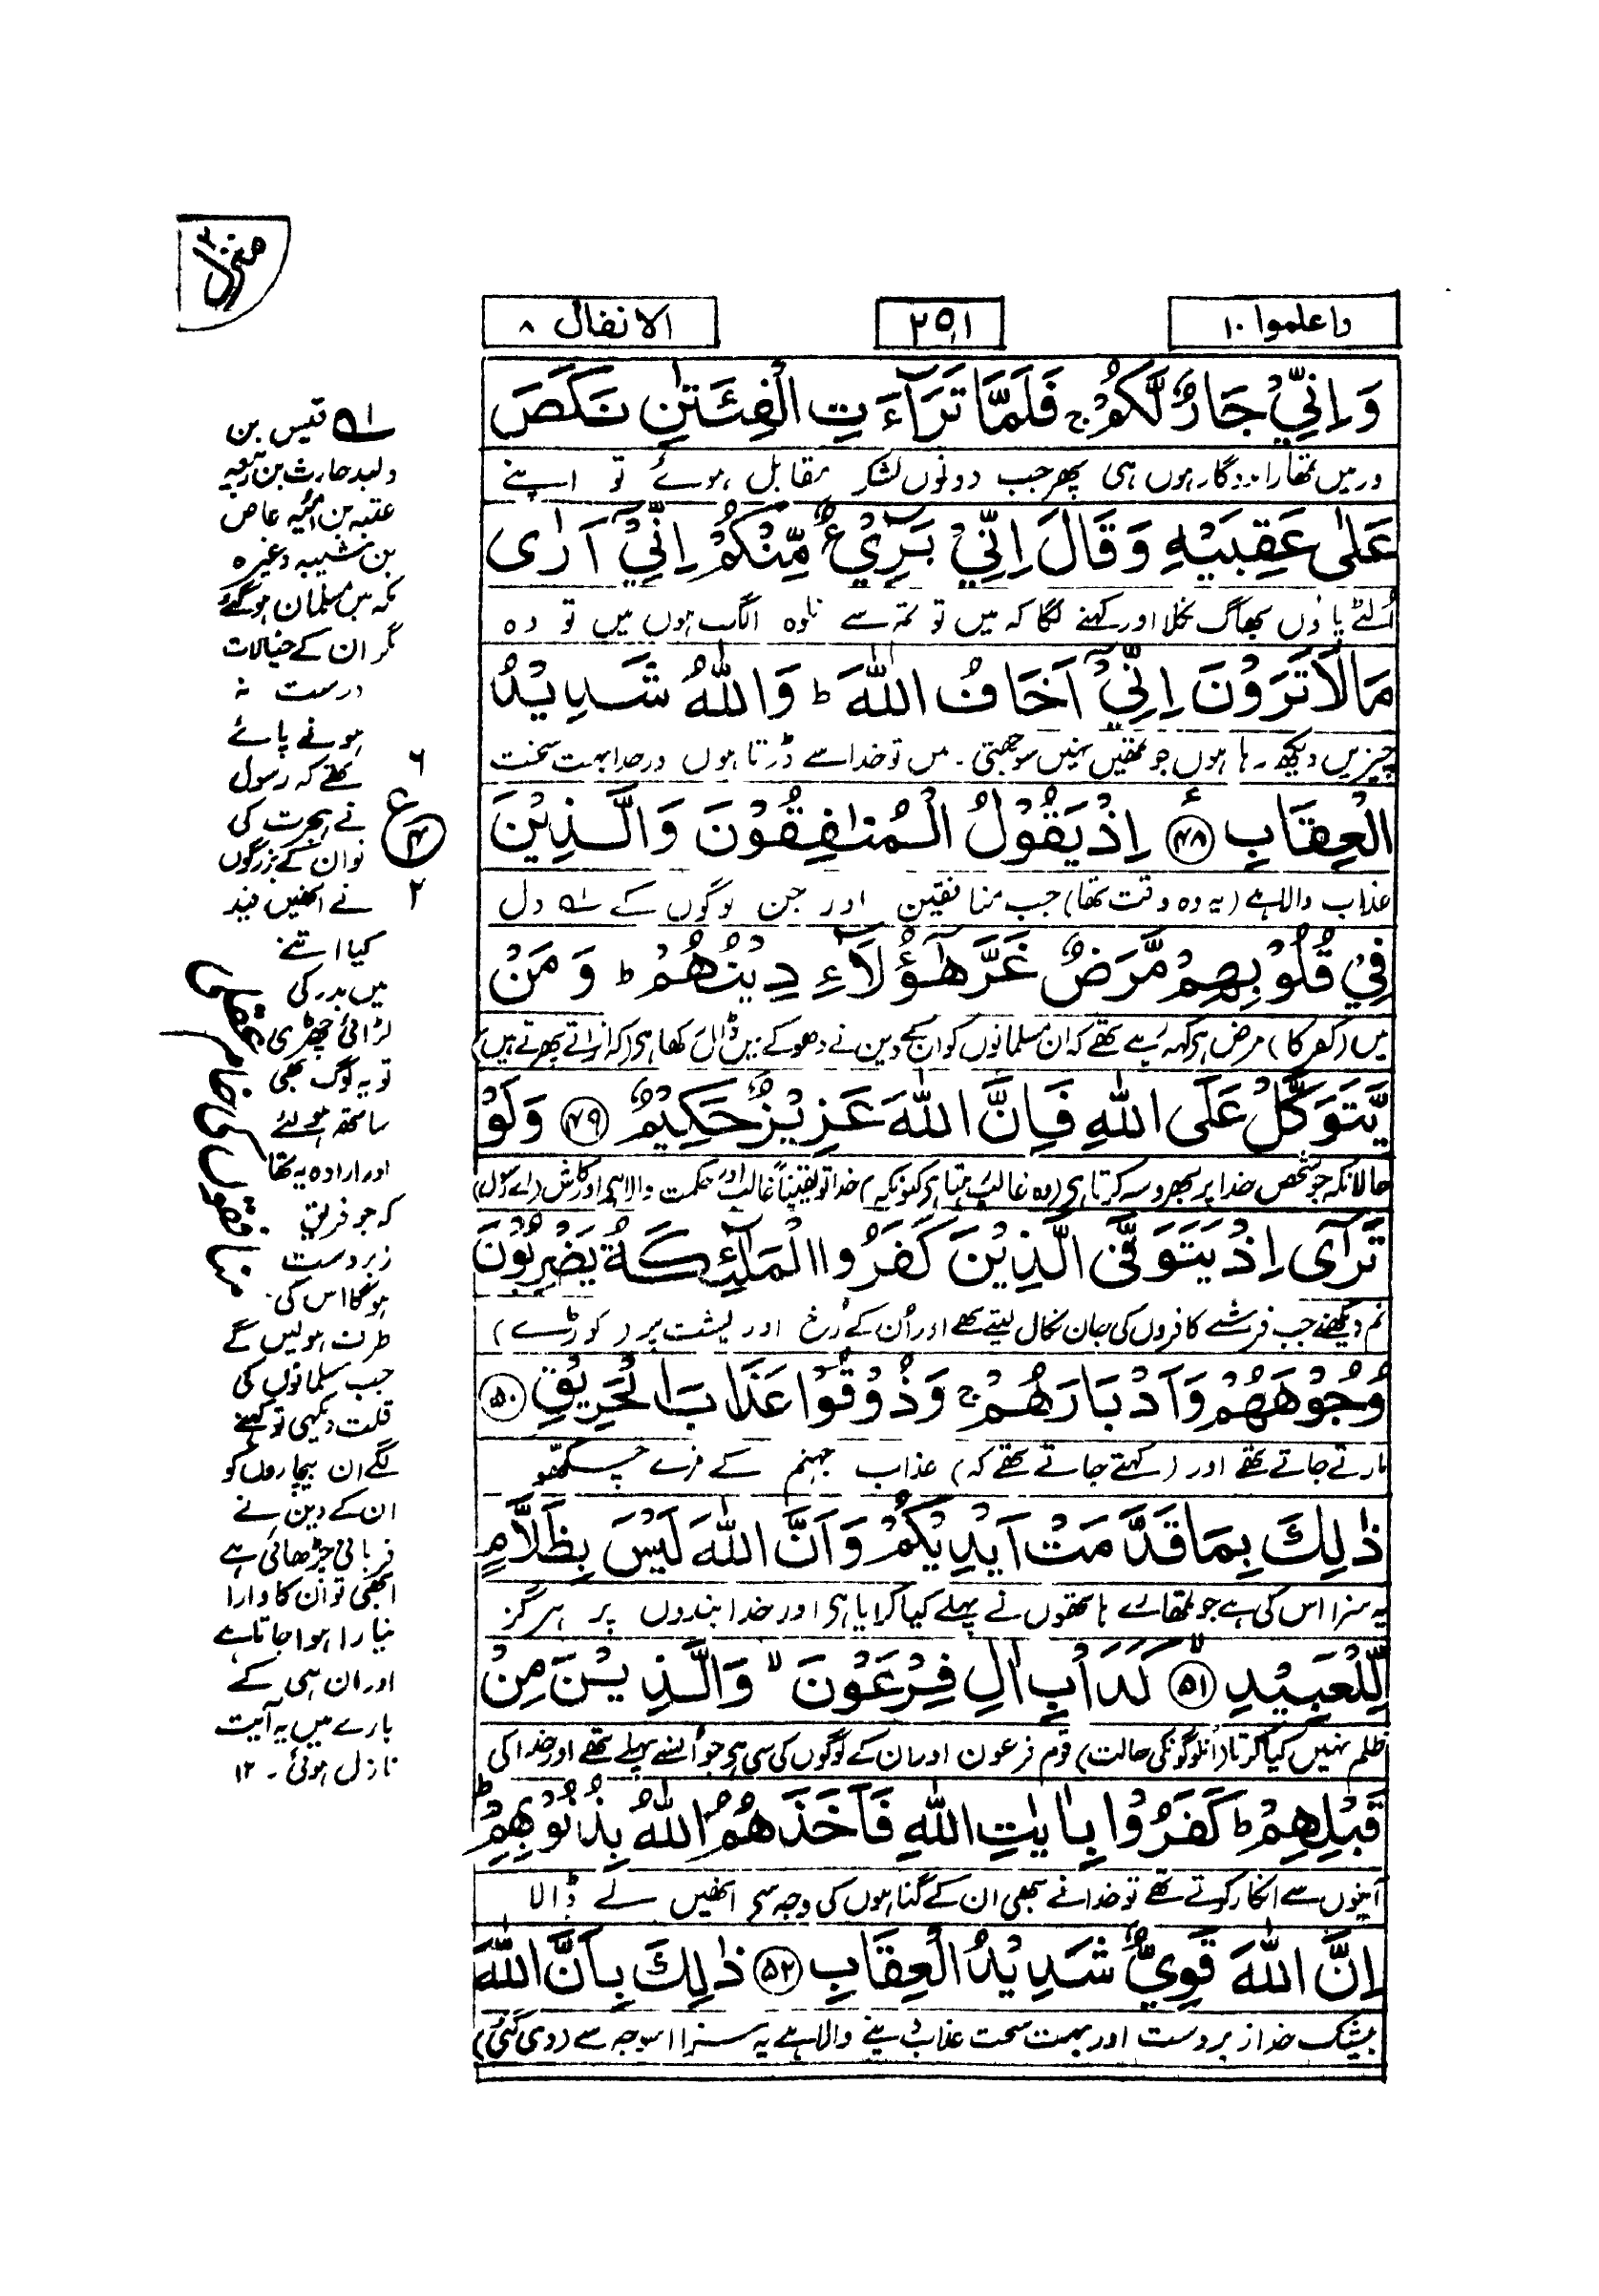 منزل ۲
واعلموا ۱۰
۲۹۱
الانفال ۸
وَاِنِّيْ جَارٌ لَّكُمْ ۚ فَلَمَّا تَرَآءَتِ الْفِئَتٰنِ نَكَصَ
ور میں تمھارا مددگار ہوں ہی پھر جب دونوں لشکر مقابل ہوئے تو اپنے
عَلٰى عَقِبَيْهِ وَقَالَ اِنِّيْ بَرِيْٓءٌ مِّنْكُمْ اِنِّيْٓ اَرٰى
اُلٹے پاؤں بھاگ نکلا اور کہنے لگا کہ میں تو تم سے الگ ہوں میں تو وہ
مَا لَا تَرَوْنَ اِنِّيْٓ اَخَافُ اللّٰهَ ؕ وَاللّٰهُ شَدِيْدُ
چیزیں دیکھ رہا ہوں جو تمھیں نہیں سوجھتی۔ میں تو خدا سے ڈرتا ہوں ور خدا بہت سخت
الْعِقَابِ ۴۸ اِذْ يَقُوْلُ الْمُنٰفِقُوْنَ وَالَّذِيْنَ
عذاب والا ہے (یہ وہ وقت تھا) جب منافقین اور جن لوگوں کے ۱ے دل
فِيْ قُلُوْبِهِمْ مَّرَضٌ غَرَّ هٰٓؤُلَآءِ دِيْنُهُمْ ؕ وَمَنْ
میں (کفر کا) مرض ہی کہہ رہے تھے کہ ان مسلمانوں کو انکے دین نے دھوکے میں ڈال رکھا ہی (کہ اتراتے پھرتے ہیں)
يَّتَوَكَّلْ عَلَى اللّٰهِ فَاِنَّ اللّٰهَ عَزِيْزٌ حَكِيْمٌ ۴۹ وَلَوْ
حالانکہ جو شخص خدا پر بھروسہ کرتا ہی (وہ غالب رہتا ہی کیونکہ) خدا تو یقیناً غالب اور حکمت والا ہی اور کاش (اے رسول)
تَرٰٓى اِذْ يَتَوَفَّى الَّذِيْنَ كَفَرُوا الْمَلٰٓئِكَةُ يَضْرِبُوْنَ
تم دیکھتے جب فرشتے کافروں کی جان نکال لیتے تھے اور اُن کے رُخ اور پشت پر (کوڑے)
وُجُوْهَهُمْ وَاَدْبَارَهُمْ ۚ وَذُوْقُوْا عَذَابَ الْحَرِيْقِ ۵۰
مارتے جاتے تھے اور (کہتے جاتے تھے کہ) عذاب جہنم کے مزے چکھو
ذٰلِكَ بِمَا قَدَّمَتْ اَيْدِيْكُمْ وَاَنَّ اللّٰهَ لَيْسَ بِظَلَّامٍ
یہ سزا اس کی ہے جو تمھارے ہاتھوں نے پہلے کیا کرایا ہی اور خدا بندوں پر ہرگز
لِّلْعَبِيْدِ ۵۱ كَدَاْبِ اٰلِ فِرْعَوْنَ ۙ وَالَّذِيْنَ مِنْ
ظلم نہیں کیا کرتا (انلوگونکی حالت) قوم فرعون اور ان کے لوگوں کی سی ہی جو اُنسے پہلے تھے اور خدا کی
قَبْلِهِمْ ؕ كَفَرُوْا بِاٰيٰتِ اللّٰهِ فَاَخَذَهُمُ اللّٰهُ بِذُنُوْبِهِمْ ؕ
آیتوں سے انکار کرتے تھے تو خدا نے بھی ان کے گناہوں کی وجہ سے انھیں لے ڈالا
اِنَّ اللّٰهَ قَوِيٌّ شَدِيْدُ الْعِقَابِ ۵۲ ذٰلِكَ بِاَنَّ اللّٰهَ
بیشک خدا زبردست اور بہت سخت عذاب دینے والا ہے یہ سزا اسوجہ سے (دی گئی)
۱ے قیس بن
ولید حارث بن ربیعہ
عتبہ بن امیہ عاص
بن شیبہ وغیرہ
مکہ میں مسلمان ہو گئے
مگر ان کے خیالات
درست نہ
ہونے پائے
تھے کہ رسول
نے ہجرت کی
توان کے بزرگوں
نے انھیں قید
کیا اتنے
میں بدر کی
لڑائی چھڑی
تو یہ لوگ بھی
ساتھ ہو لئے
اور ارادہ یہ تھا
کہ جو فریق
زبردست
ہوگا اس کی
طرف ہولیں گے
جب مسلمانوں کی
قلت دیکھی تو کہنے
لگے ان بیچاروں کو
ان کے دین نے
قربانی چڑھائی ہے
ابھی تو ان کا وارا
نیارا ہوا جاتا ہے
اور ان ہی کے
بارے میں یہ آیت
نازل ہوئی۔ ۱۲
۶
ع
۴
۲
منافقوں کی خام عقلی